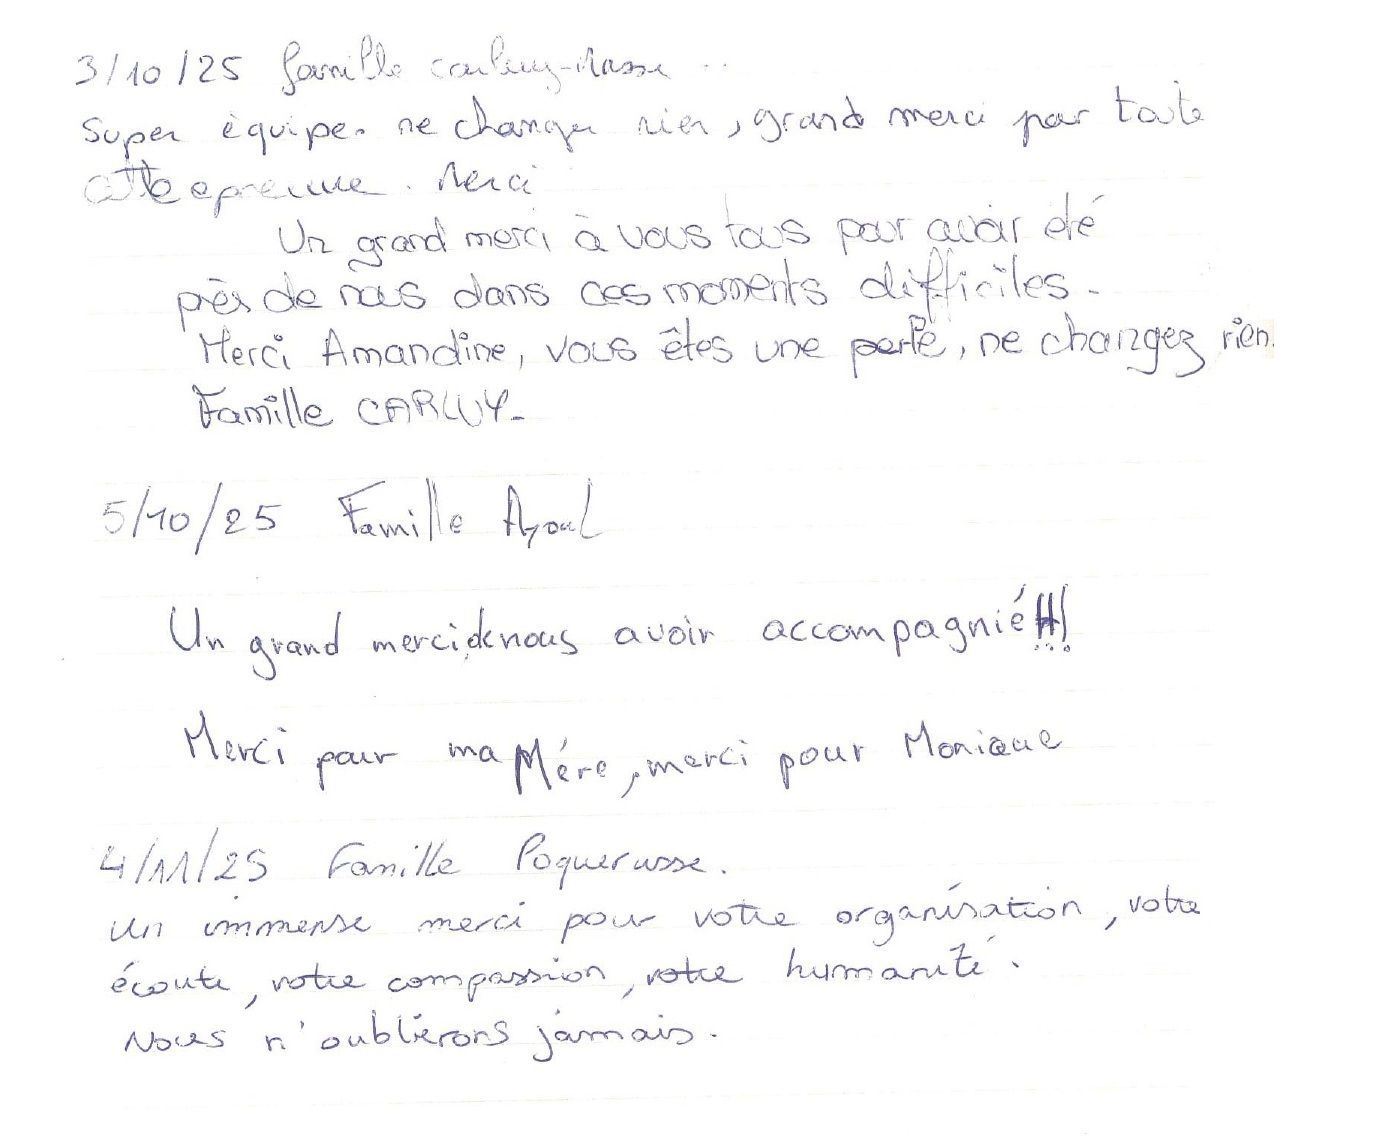 3/10/25 famille Carluy-Masse
Super équipe. ne changer rien, grand merci par toute
cette epreuve. Merci
Un grand merci à vous tous pour avoir été
près de nous dans ces moments difficiles.
Merci Amandine, vous êtes une perle, ne changez rien.
Famille CARLUY.
5/10/25 Famille
Un grand merci de nous avoir accompagnié !!!
Merci pour ma Mére, merci pour Monique
4/11/25 Famille Poquerusse.
Un immense merci pour votre organisation, votre
écoute, votre compassion, votre humanité.
Nous n'oublierons jamais.